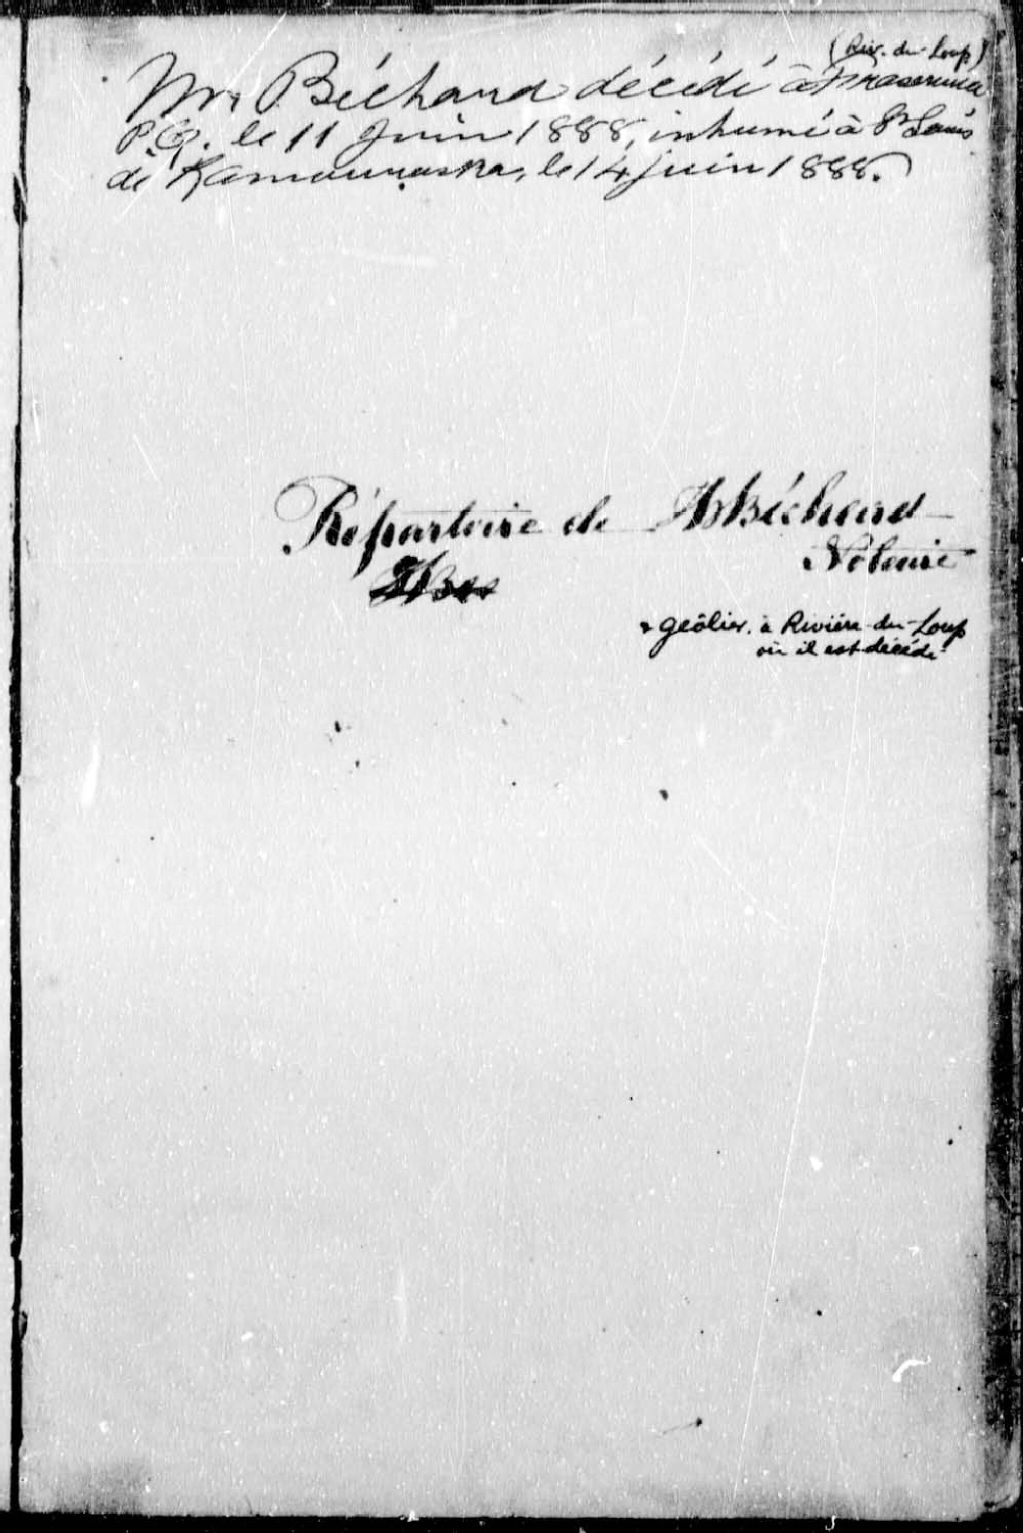 (Riv. du Loup)
Mr. Béchard décédé à Fraserville
P.Q. le 11 Juin 1888, inhumé à St Louis
de Kamouraska, le 14 juin 1888.
Répertoire de JBBéchard
Notaire
& geôlier. à Rivière-du-Loup
où il est décédé